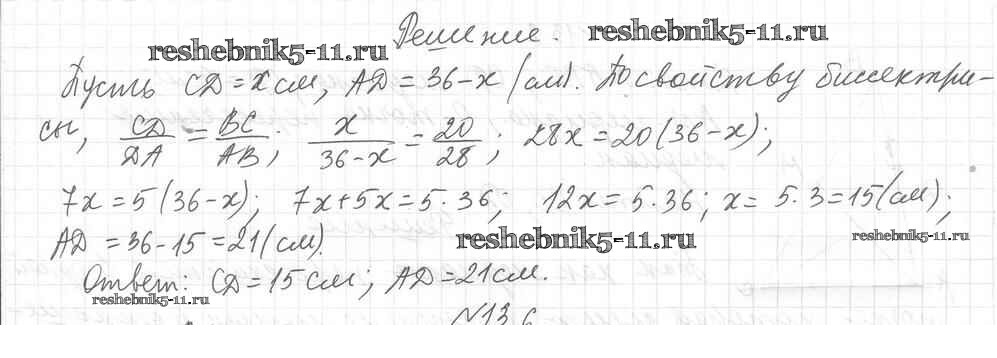 Решение.
reshebnik5-11.ru reshebnik5-11.ru
Пусть CD = x см, AD = 36-x (см). По свойству биссектри-
сы, CD/DA = BC/AB; x/(36-x) = 20/28; 28x = 20(36-x);
7x = 5(36-x); 7x+5x = 5·36; 12x = 5·36; x = 5·3 = 15(см);
AD = 36-15 = 21(см).
reshebnik5-11.ru reshebnik5-11.ru
Ответ: CD = 15 см; AD = 21 см.
reshebnik5-11.ru